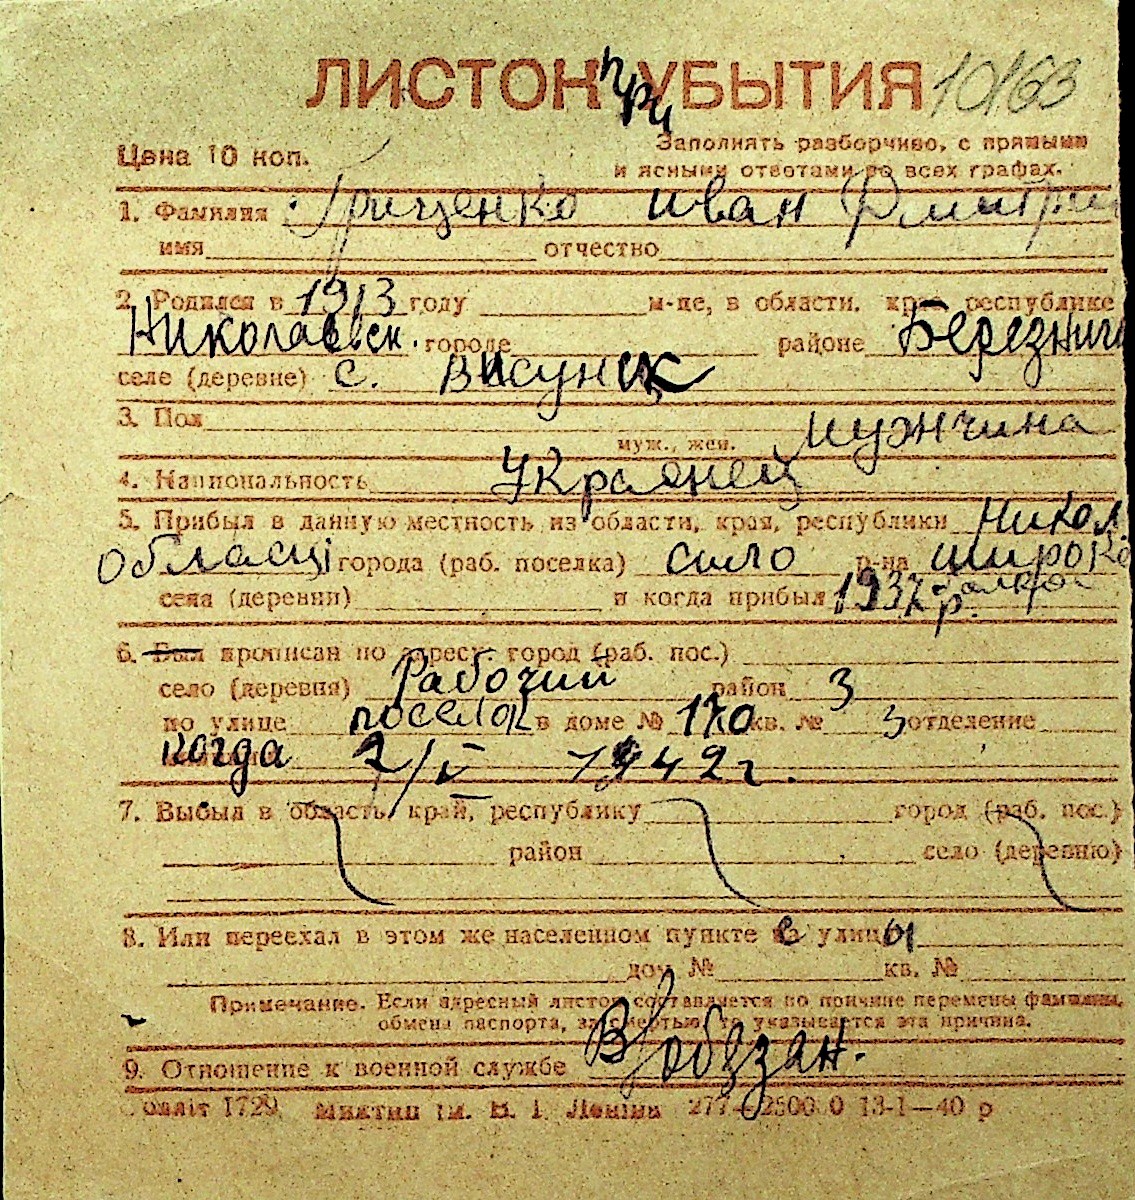 ЛИСТОК при УБЫТИЯ 10163
Цена 10 коп.
Заполнять разборчиво, с прямыми
и ясными ответами во всех графах.
1. Фамилия Гриценко Иван Дмитри
имя отчество
2. Родился в 1913 году м-це, в области, края республике
Николаевск. городе районе Березниги
селе (деревне) с. Висунск
3. Пол мужчина
муж., жен.
4. Национальность Украинец
5. Прибыл в данную местность из области, края, республики Никол
області города (раб. поселка) сило р-на широко
села (деревни) и когда прибыл 1937 р.
6. Был прописан по адресу: город (раб. пос.)
село (деревня) Рабочий район 3
по улице поселок в доме № 170 кв. № 3 отделение
когда 2/V 1942 г.
7. Выбыл в область, край, республику город (раб. пос.)
район село (деревню)
8. Или переехал в этом же населенном пункте с улицы
дом № кв. №
Примечание. Если адресный листок составляется по причине перемены фамилии,
обмена паспорта, за смертью, то указывается эта причина.
9. Отношение к военной службе В/обязан.
Облліт 1729 Миктип ім. В. І. Леніна 277—2500 0 13-1—40 р